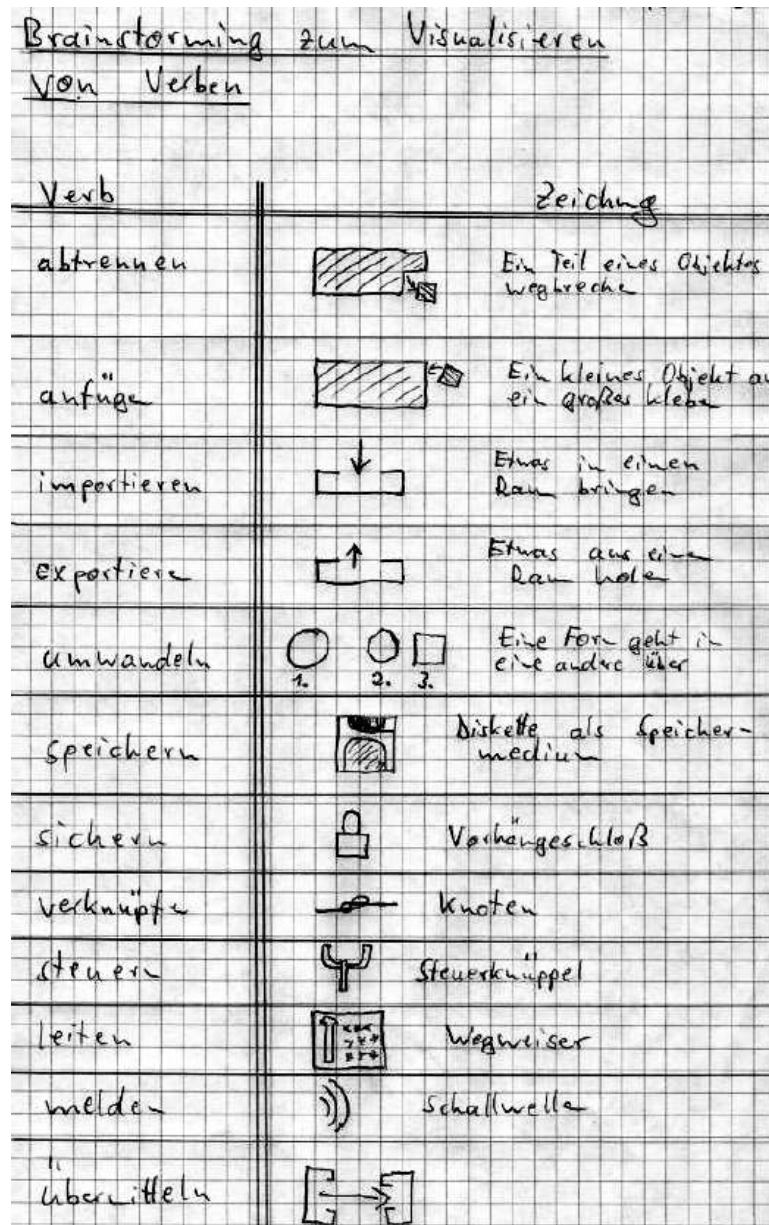 Brainstorming zum Visualisieren
von Verben
Verb Zeichnug
abtrennen Ein Teil eines Objektes
wegbreche
anfüge Ein kleines Objekt an
ein großes klebe
importieren Etwas in einen
Raum bringen
exportiere Etwas aus eine
Raum hole
umwandeln Eine Form geht in
eine andere über
1. 2. 3.
speichern Diskette als Speicher-
medium
sichern Vorhängeschloß
verknüpfe Knoten
steuern Steuerknüppel
leiten Wegweiser
melden Schallwelle
übermitteln